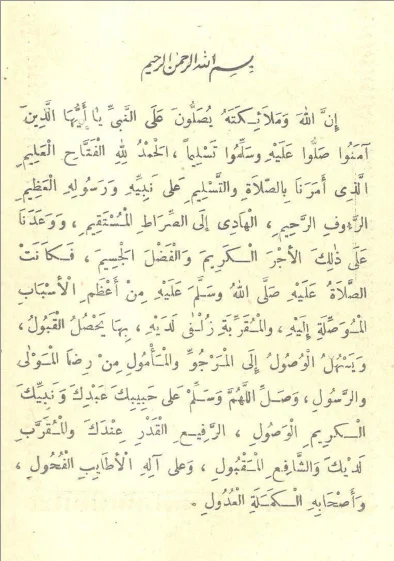 بِسْمِ اللهِ الرَّحْمٰنِ الرَّحِيْمِ
إِنَّ اللهَ وَمَلَائِكَتَهُ يُصَلُّونَ عَلَى النَّبِيِّ يَا أَيُّهَا الَّذِينَ
آمَنُوا صَلُّوا عَلَيْهِ وَسَلِّمُوا تَسْلِيماً ، الْحَمْدُ لِلهِ الْفَتَّاحِ الْعَلِيمِ
الَّذِى أَمَرَنَا بِالصَّلَاةِ وَالتَّسْلِيمِ عَلَى نَبِيِّهِ وَرَسُولِهِ الْعَظِيمِ
الرَّءُوفِ الرَّحِيمِ ، الْهَادِى إِلَى الصِّرَاطِ الْمُسْتَقِيمِ ، وَوَعَدَنَا
عَلَى ذٰلِكَ الْأَجْرَ الْكَرِيمَ وَالْفَضْلَ الْجَسِيمَ ، فَكَانَتْ
الصَّلَاةُ عَلَيْهِ صَلَّى اللهُ وَسَلَّمَ عَلَيْهِ مِنْ أَعْظَمِ الْأَسْبَابِ
الْمُوَصِّلَةِ إِلَيْهِ ، وَالْمُقَرِّبَةِ زُلْفَى لَدَيْهِ ، بِهَا يَحْصُلُ الْقَبُولُ ،
وَيَسْهُلُ الْوُصُولُ إِلَى الْمَرْجُوِّ وَالْمَأْمُولِ مِنْ رِضَا الْمَوْلَى
والرَّسُولِ ، وَصَلِّ اللَّهُمَّ وَسَلِّمْ عَلَى حَبِيبِكَ عَبْدِكَ وَنَبِيِّكَ
الْكَرِيمِ الْوَصُولِ ، الرَّفِيعِ الْقَدْرِ عِنْدَكَ وَالْمُقَرَّبِ
لَدَيْكَ وَالشَّافِعِ الْمَقْبُولِ ، وَعَلَى آلِهِ الْأَطَايِبِ الْفُحُولِ ،
وَأَصْحَابِهِ الْكَمَلَةِ الْعُدُولِ .